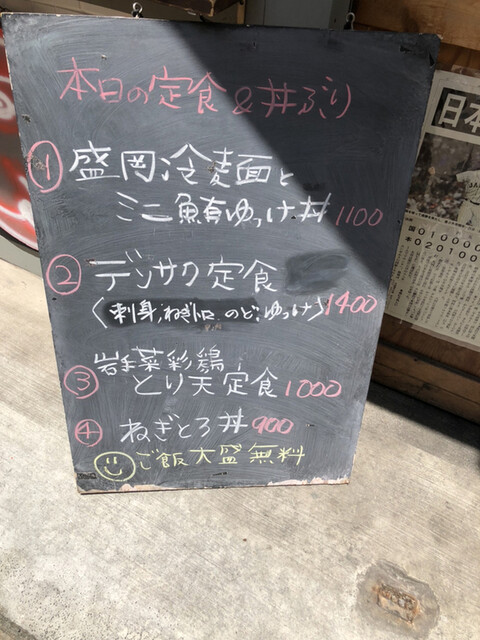 本日の定食&丼ぶり
① 盛岡冷麺と
ミニ鮪ゆっけ丼 1100
② デンサク定食
(刺身、ねぎトロ のど、ゆっけ) 1400
岩手菜彩鶏
③ とり天定食 1000
④ ねぎとろ丼 900
ご飯大盛無料
日本
国 010000
020100